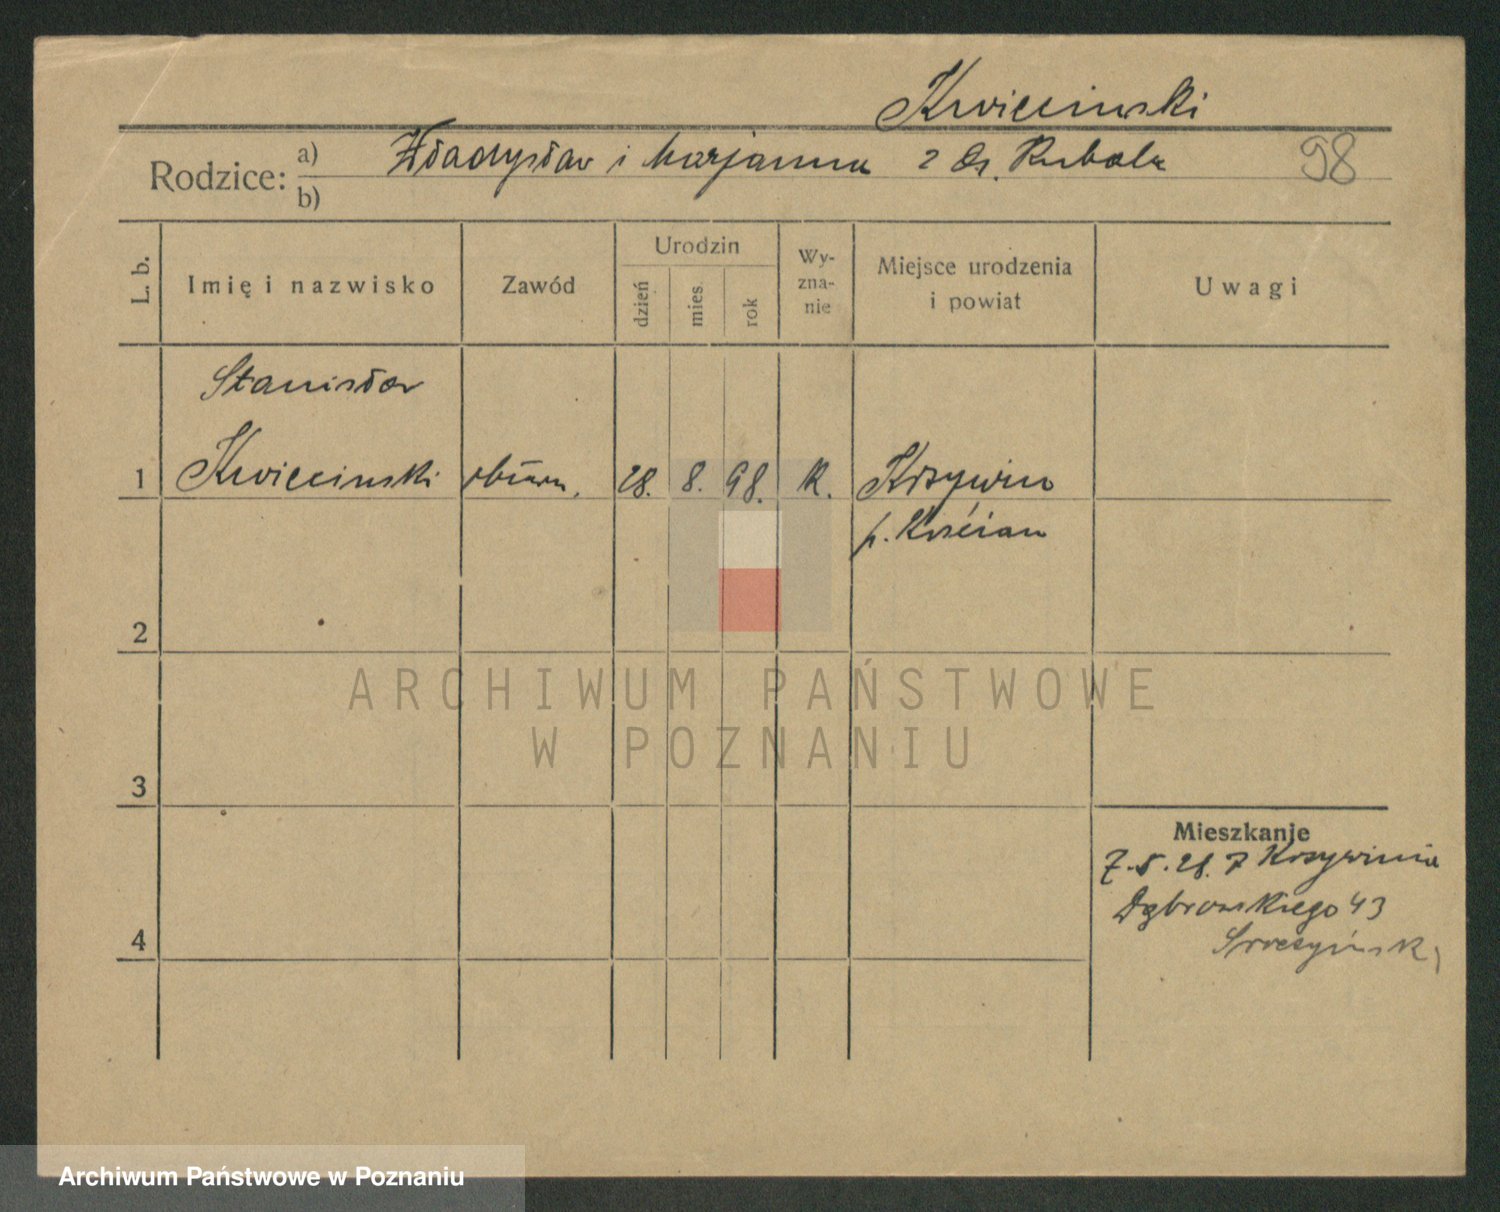 Kwieciński
Rodzice: a) Władysław i Marjanna z d. Rubala 98
b)
L. b. Imię i nazwisko Zawód Urodzin dzień mies. rok Wyznanie Miejsce urodzenia i powiat Uwagi
Stanisław
1 Kwieciński 28. 8. 98. R. Krzywiń
p. Kościan
2
ARCHIWUM PAŃSTWOWE
W POZNANIU
3
Mieszkanie
7.5.28. z Krzywinia
Dąbrowskiego 43
4
Archiwum Państwowe w Poznaniu